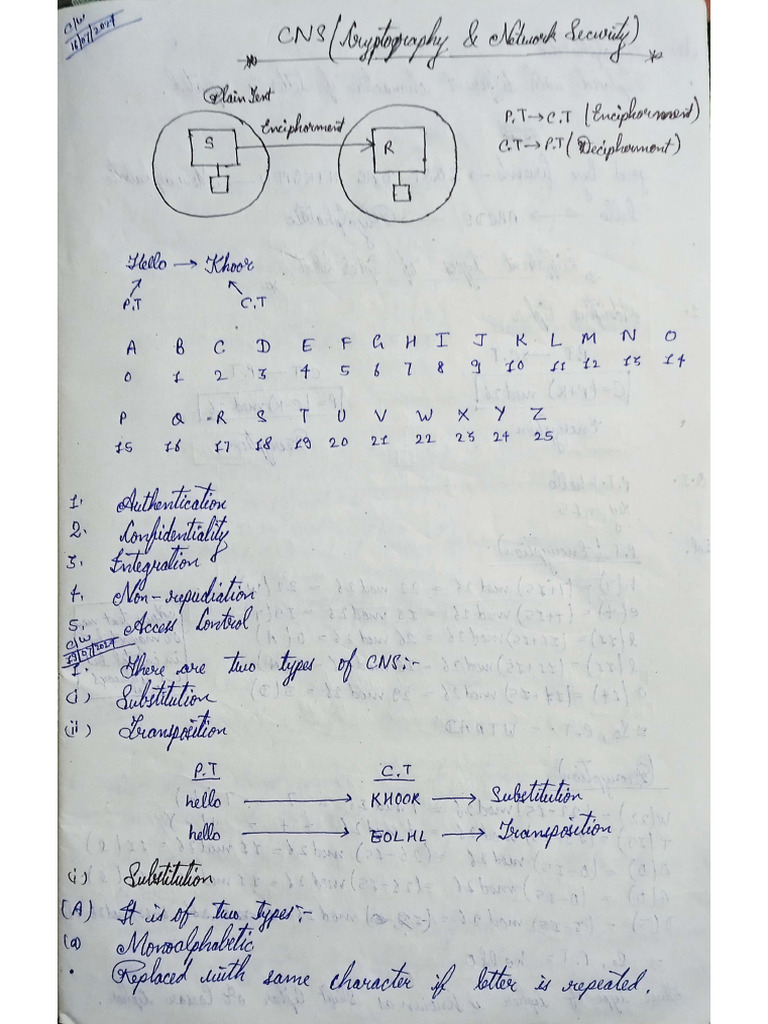 C/W
18/07/2024
CNS (Cryptography & Network Security)
Plain Text
S
Enciphorment
R
P.T → C.T (Enciphorment)
C.T → P.T (Deciphorment)
Hello → Khoor
P.T C.T
A B C D E F G H I J K L M N O
0 1 2 3 4 5 6 7 8 9 10 11 12 13 14
P Q R S T U V W X Y Z
15 16 17 18 19 20 21 22 23 24 25
1. Authentication
2. Confidentiality
3. Integration
4. Non-repudiation
5. Access Control
C/W
19/07/2024
1. There are two types of CNS:-
(i) Substitution
(ii) Transposition
P.T C.T
hello → KHOOR → Substitution
hello → EOLHL → Transposition
(i) Substitution
(A) It is of two types:-
(a) Monoalphabetic
• Replaced with same character if letter is repeated.